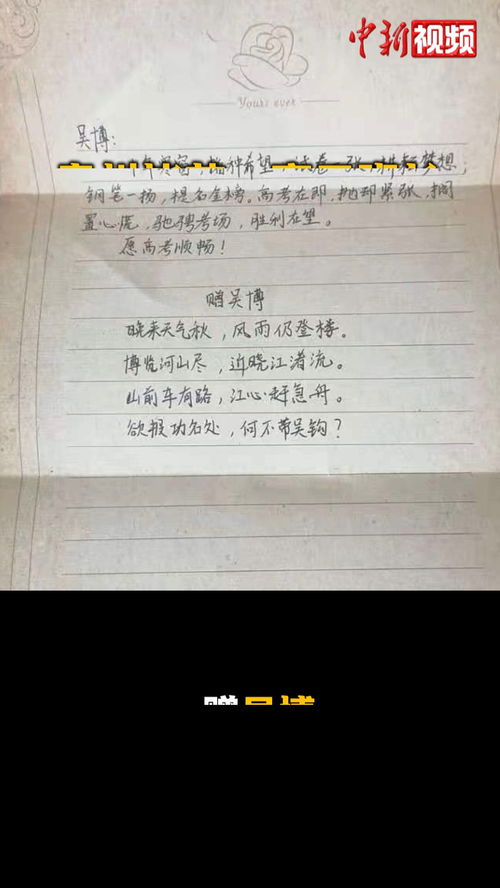 中新视频
Yours ever
吴博:
十年寒窗,诸种希望,试卷一张,拼耘梦想,
钢笔一扬,提名金榜。高考在即,抛却紧张,搁
置心慌,驰骋考场,胜利在望。
愿高考顺畅!
赠吴博
晚来天气秋,风雨仍登楼。
博览河山尽,近晓江渚流。
山前车有路,江心赶急舟。
欲报功名处,何不带吴钩?
赠吴博